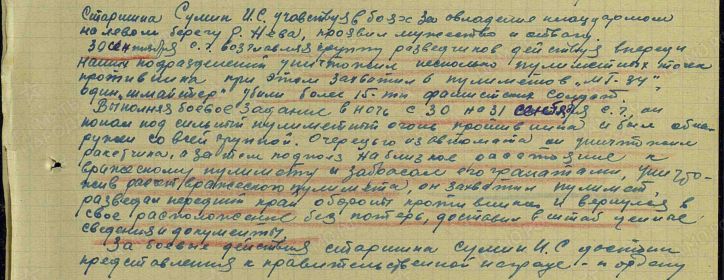 Старшина Сумин И.С. участвуя в боях за овладение плацдармом
на левом берегу р. Нева, проявил мужество и отвагу.
30 сентября с.г. возглавляя группу разведчиков действуя впереди
наших подразделений уничтожил несколько пулеметных точек
противника при этом захватил 6 пулеметов "МГ-34"
один "шмайстер" убили более 15-ти фашистских солдат.
Выполняя боевое задание в ночь с 30 на 31 сентября с.г. он
попал под сильный пулеметный огонь противника и был обна-
ружен со всей группой. Очередью из автомата он уничтожил
ракетчика, а затем подполз на близкое расстояние к
вражескому пулемету и забросал его гранатами, уничто-
жив расчет вражеского пулемета, он захватил пулемет,
разведал передний край обороны противника и вернулся в
свое расположение без потерь, доставил в штаб ценные
сведения и документы.
За боевые действия старшина Сумин И.С. достоин
представления к правительственной награде - к ордену